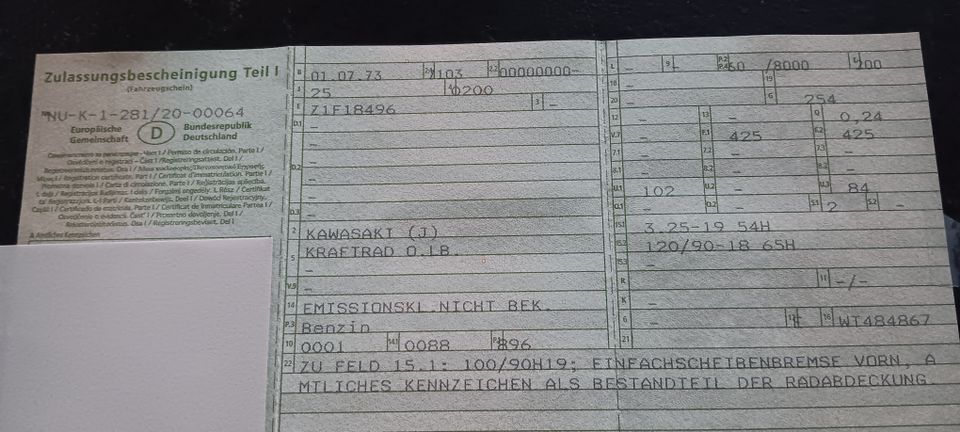 Zulassungsbescheinigung Teil I
(Fahrzeugschein)
NU-K-1-281/20-00064
Europäische Gemeinschaft
D
Bundesrepublik Deutschland
A Amtliches Kennzeichen
B 01.07.73 2.1 7103 2.2 00000000-
J 25 4 0200
E Z1F18496 3 -
D.1 -
-
D.2 -
-
-
D.3 -
2 KAWASAKI (J)
5 KRAFTRAD O.LB.
-
V.9 -
14 EMISSIONSKL.NICHT BEK.
P.3 Benzin
10 0001 14.1 0088 P.1 896
L - 9 - P.2 P.4 60 /8000 T 200
18 - 19
20 - G 254
12 - 13 - Q 0,24
V.7 - F.1 425 F.2 425
7.1 - 7.2 - 7.3 -
8.1 - 8.2 - 8.3 -
U.1 102 U.2 - U.3 84
O.1 - O.2 - S.1 2 S.2 -
15.1 3.25-19 54H
15.2 120/90-18 65H
15.3 -
R 11 -/-
K -
6 - 17 16 WT484867
21
22 ZU FELD 15.1: 100/90H19; EINFACHSCHEIBENBREMSE VORN, A
MTLICHES KENNZEICHEN ALS BESTANDTEIL DER RADABDECKUNG.